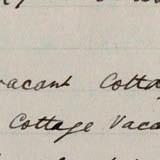 vacant Cotta
Cottage Vaca